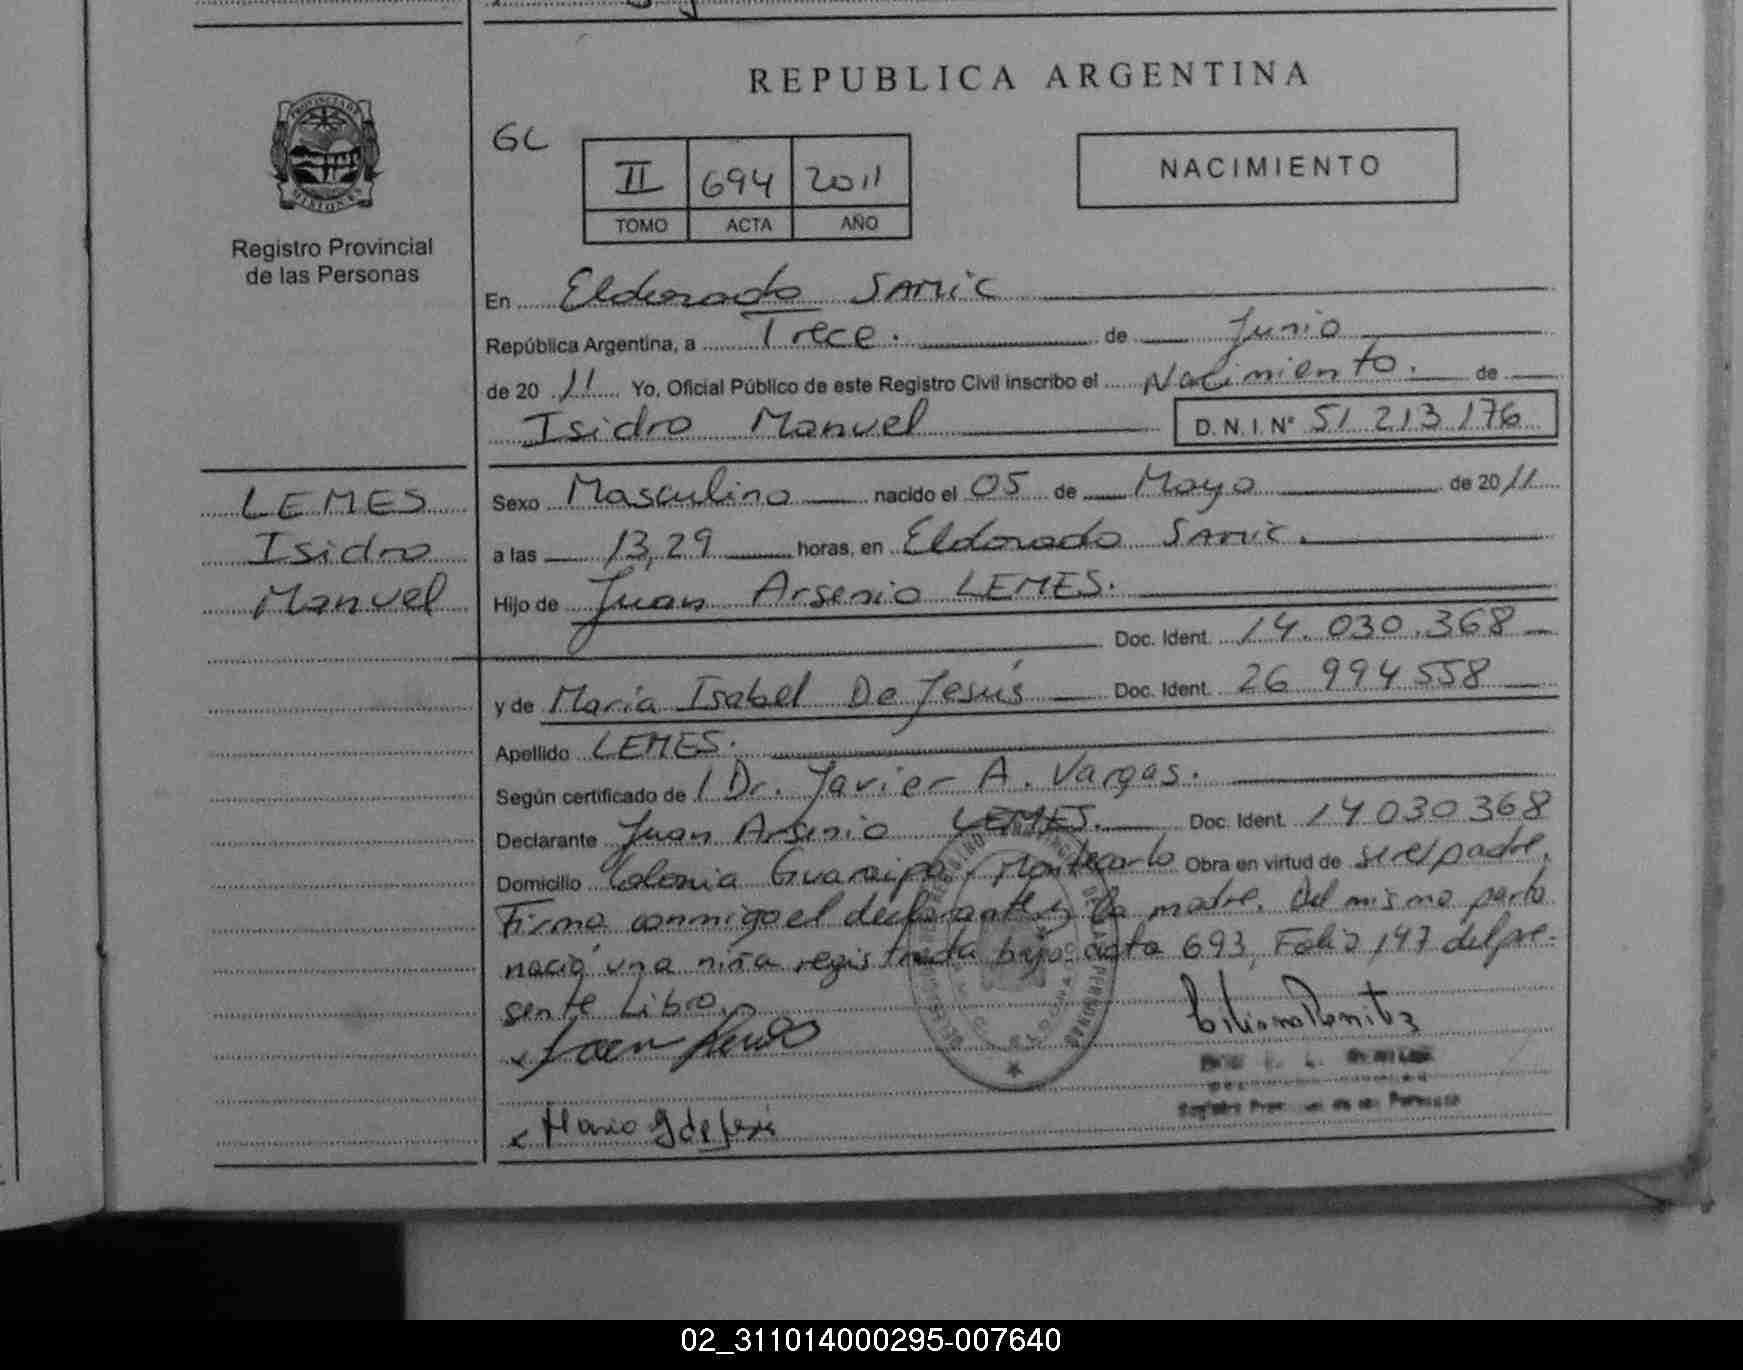 REPUBLICA ARGENTINA
PROVINCIA DE
MISIONES
Registro Provincial
de las Personas
GL
II 694 2011
TOMO ACTA AÑO
NACIMIENTO
En Eldorado SAMIC
República Argentina, a Trece. de Junio
de 20 11 Yo, Oficial Público de este Registro Civil inscribo el Nacimiento. de
Isidro Manuel D.N.I.N° 51 213 176
LEMES
Isidro
Manuel
Sexo Masculino nacido el 05 de Mayo de 20 11
a las 13,29 horas, en Eldorado SAMIC.
Hijo de Juan Arsenio LEMES.
Doc. Ident. 14.030.368
y de María Isabel De Jesús Doc. Ident. 26 994 558
Apellido LEMES.
Según certificado de l Dr. Javier A. Vargas.
Declarante Juan Arsenio LEMES. Doc. Ident. 14 030 368
Domicilio Colonia Guaraipo, Montecarlo Obra en virtud de ser el padre.
Firma conmigo el declarante y la madre. Del mismo parto
nació una niña registrada bajo acta 693, Folio 147 del pre-
sente Libro.
02_311014000295-007640